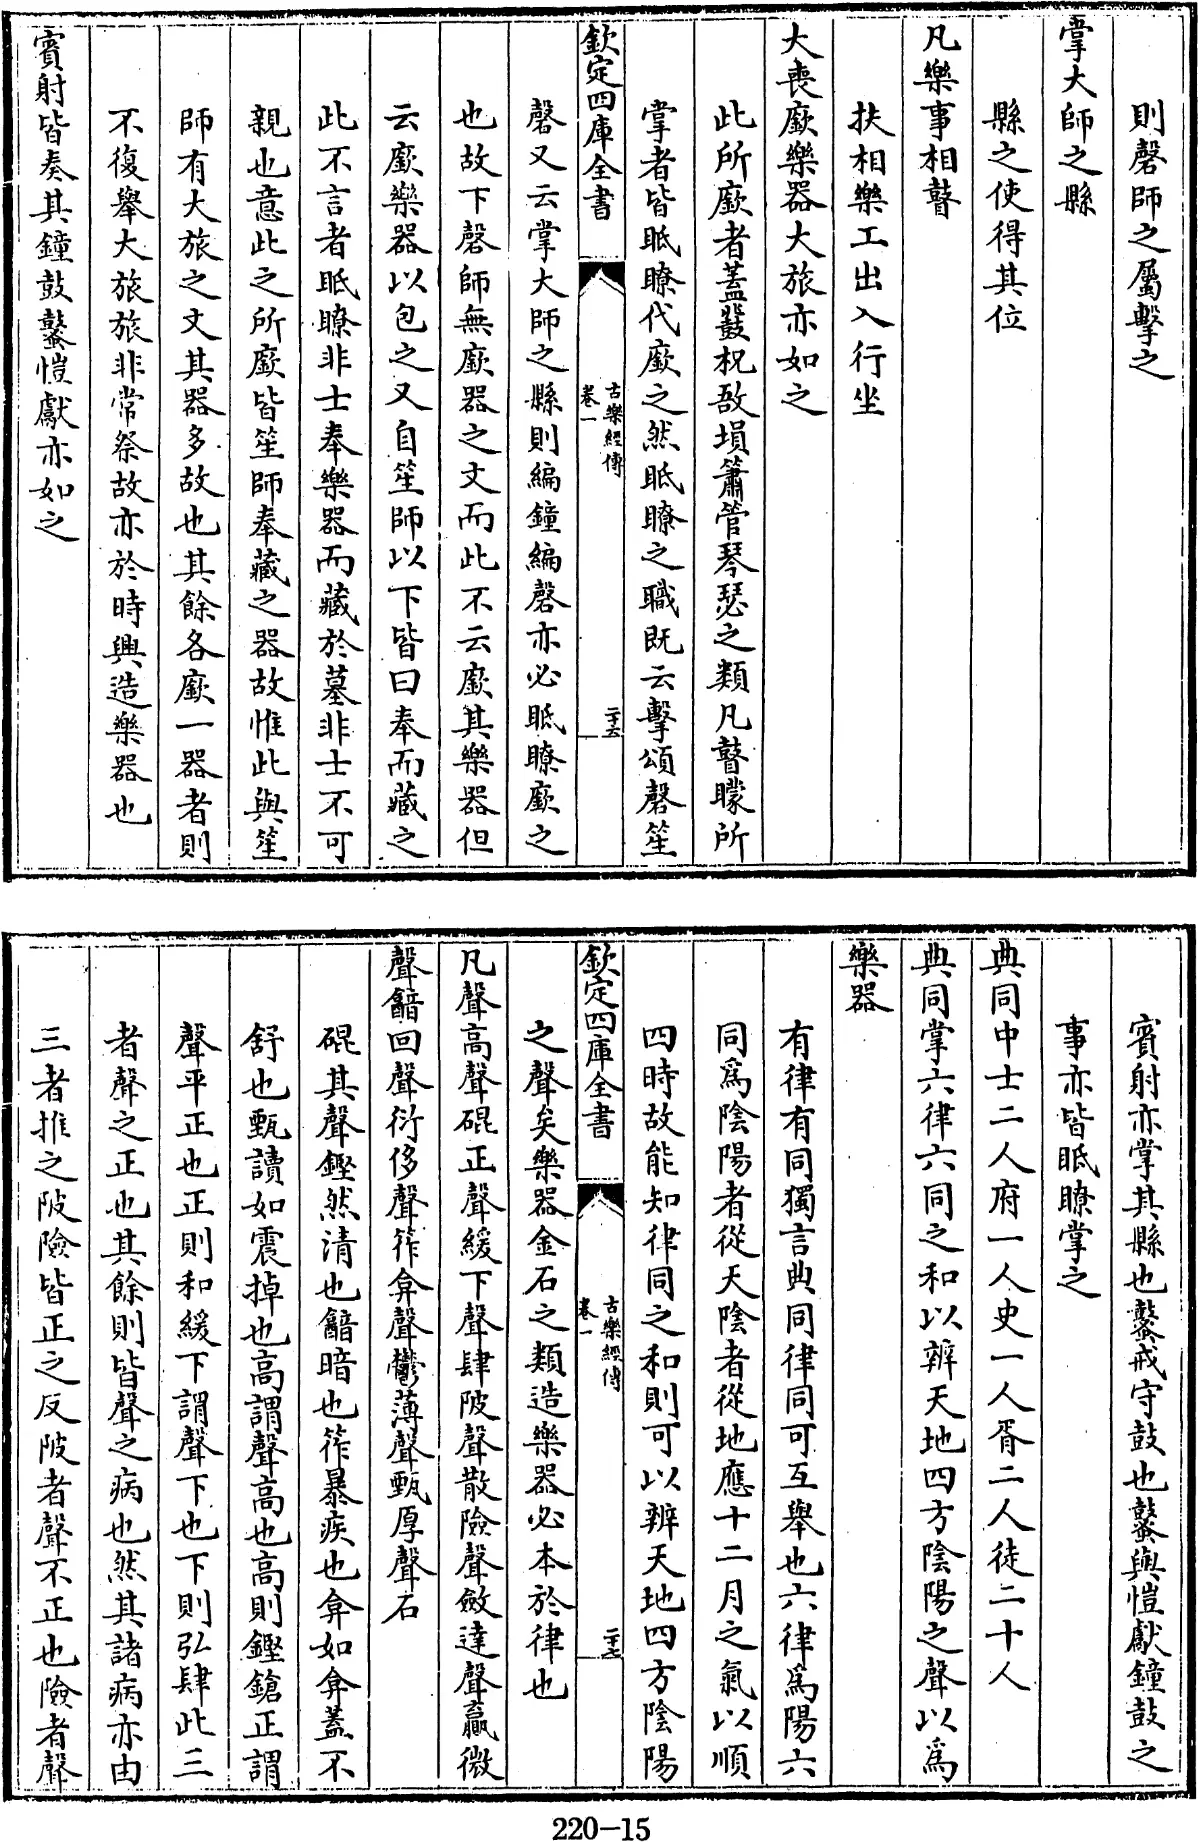 則磬師之屬擊之
掌大師之縣
縣之使得其位
凡樂事相瞽
扶相樂工出入行坐
大喪廞樂器大旅亦如之
此所廞者蓋鼗柷敔塤簫管琴瑟之類凡瞽矇所
掌者皆眂瞭代廞之然眂瞭之職既云擊頌磬笙
欽定四庫全書
古樂經傳
卷一
二十六
磬又云掌大師之縣則編鐘編磬亦必眂瞭廞之
也故下磬師無廞器之文而此不云廞其樂器但
云廞樂器以包之又自笙師以下皆曰奉而藏之
此不言者眂瞭非士奉樂器而藏於墓非士不可
親也意此之所廞皆笙師奉藏之器故惟此與笙
師有大旅之文其器多故也其餘各廞一器者則
不復舉大旅旅非常祭故亦於時興造樂器也
賓射皆奏其鐘鼓鼜愷獻亦如之
賓射亦掌其縣也鼜戒守鼓也鼜與愷獻鐘鼓之
事亦皆眂瞭掌之
典同中士二人府一人史一人胥二人徒二十人
典同掌六律六同之和以辨天地四方陰陽之聲以爲
樂器
有律有同獨言典同律同可互舉也六律爲陽六
同爲陰陽者從天陰者從地應十二月之氣以順
四時故能知律同之和則可以辨天地四方陰陽
欽定四庫全書
古樂經傳
卷一
二十七
之聲矣樂器金石之類造樂器必本於律也
凡聲高聲硍正聲緩下聲肆陂聲散險聲斂達聲贏微
聲韽回聲衍侈聲筰弇聲鬱薄聲甄厚聲石
硍其聲鏗然清也韽暗也筰暴疾也弇如弇蓋不
舒也甄讀如震掉也高謂聲高也高則鏗鎗正謂
聲平正也正則和緩下謂聲下也下則弘肆此三
者聲之正也其餘則皆聲之病也然其諸病亦由
三者推之陂險皆正之反陂者聲不正也險者聲
220-15